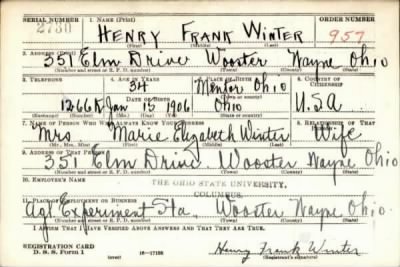 SERIAL NUMBER 1. NAME (Print) ORDER NUMBER
2730 HENRY FRANK WINTER 957
(First) (Middle) (Last)
2. ADDRESS (Print)
351 Elm Drive Wooster Wayne Ohio
(Number and street or R. F. D. number) (Town) (County) (State)
3. TELEPHONE 4. AGE IN YEARS 5. PLACE OF BIRTH 6. COUNTRY OF CITIZENSHIP
34 Mentor Ohio
DATE OF BIRTH (Town or county)
1266K Jan 15 1906 Ohio U.S.A.
(Exchange) (Number) (Mo.) (Day) (Yr.) (State or country)
7. NAME OF PERSON WHO WILL ALWAYS KNOW YOUR ADDRESS 8. RELATIONSHIP OF THAT PERSON
Mrs. Marie Elizabeth Winter Wife
(Mr., Mrs., Miss) (First) (Middle) (Last)
9. ADDRESS OF THAT PERSON
351 Elm Drive Wooster Wayne Ohio
(Number and street or R. F. D. number) (Town) (County) (State)
10. EMPLOYER'S NAME
THE OHIO STATE UNIVERSITY,
COLUMBUS
11. PLACE OF EMPLOYMENT OR BUSINESS
Agt. Experiment Sta. Wooster Wayne Ohio
(Number and street or R. F. D. number) (Town) (County) (State)
I AFFIRM THAT I HAVE VERIFIED ABOVE ANSWERS AND THAT THEY ARE TRUE.
REGISTRATION CARD
D. S. S. Form 1 (over) 16—17105 Henry Frank Winter
(Registrant's signature)